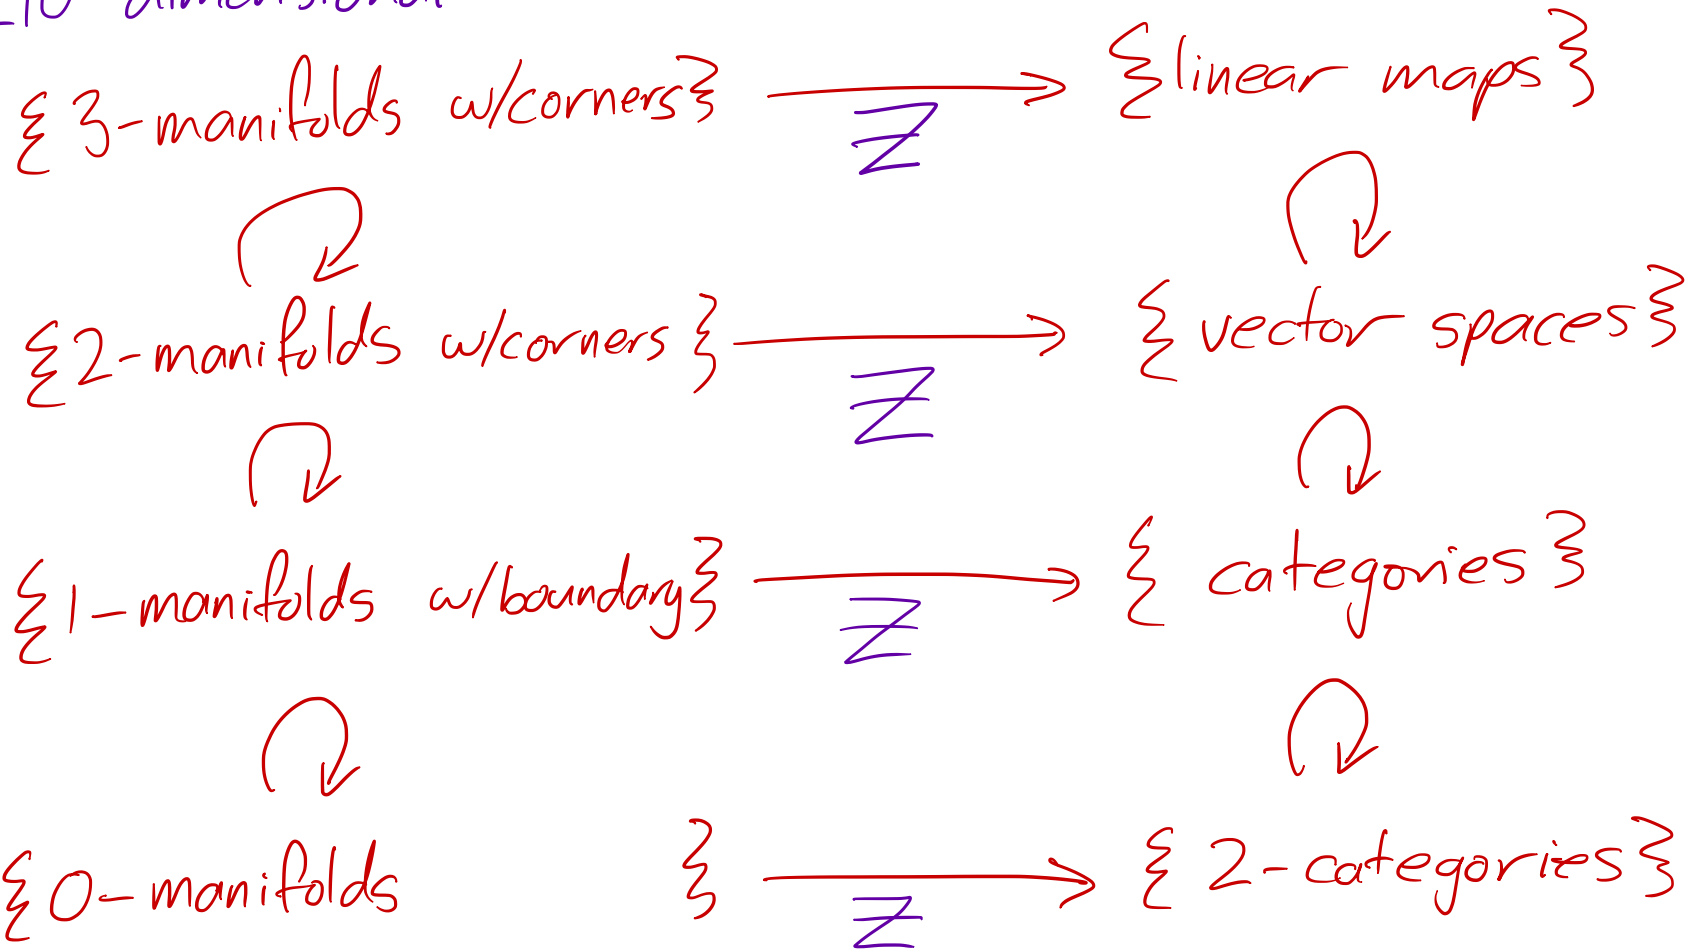 dimensional
{ 3-manifolds w/corners } → Z { linear maps }
{ 2-manifolds w/corners } → Z { vector spaces }
{ 1-manifolds w/boundary } → Z { categories }
{ 0-manifolds } → Z { 2-categories }